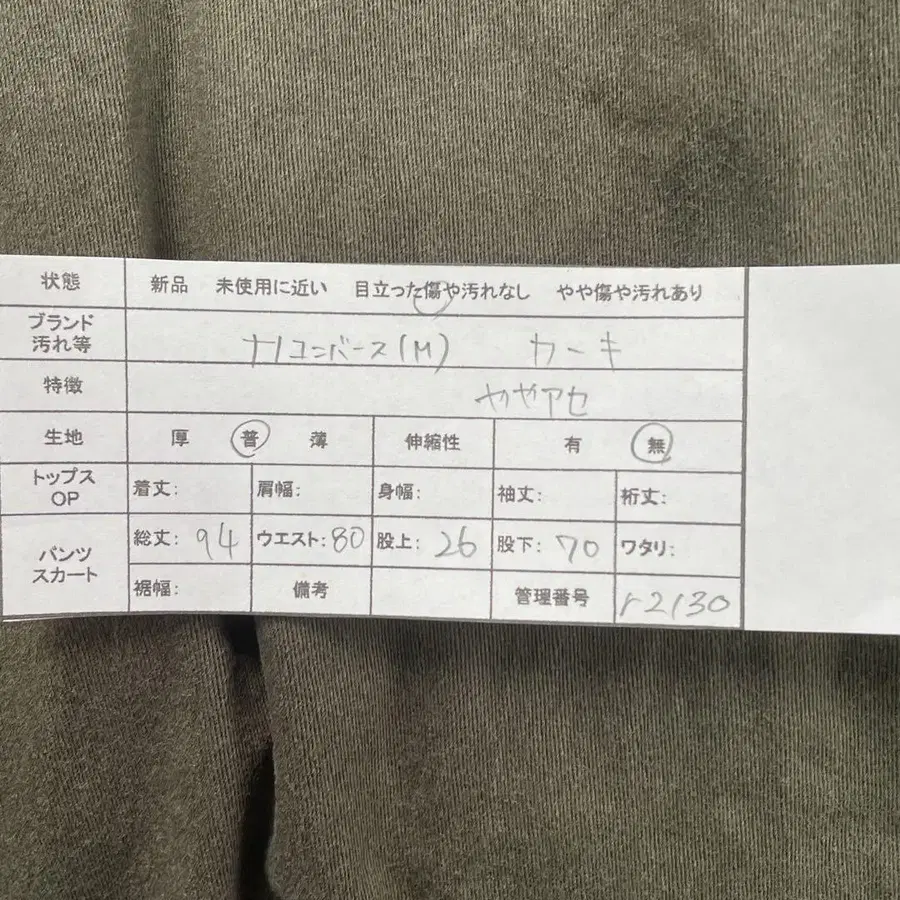 状態 新品 未使用に近い 目立った傷や汚れなし やや傷や汚れあり
ブランド
汚れ等 ナノユニバース(M) カーキ
特徴 ややアセ
生地 厚 普 薄 伸縮性 有 無
トップス
OP 着丈: 肩幅: 身幅: 袖丈: 裄丈:
パンツ
スカート 総丈: 94 ウエスト: 80 股上: 26 股下: 70 ワタリ:
裾幅: 備考 管理番号 r2130